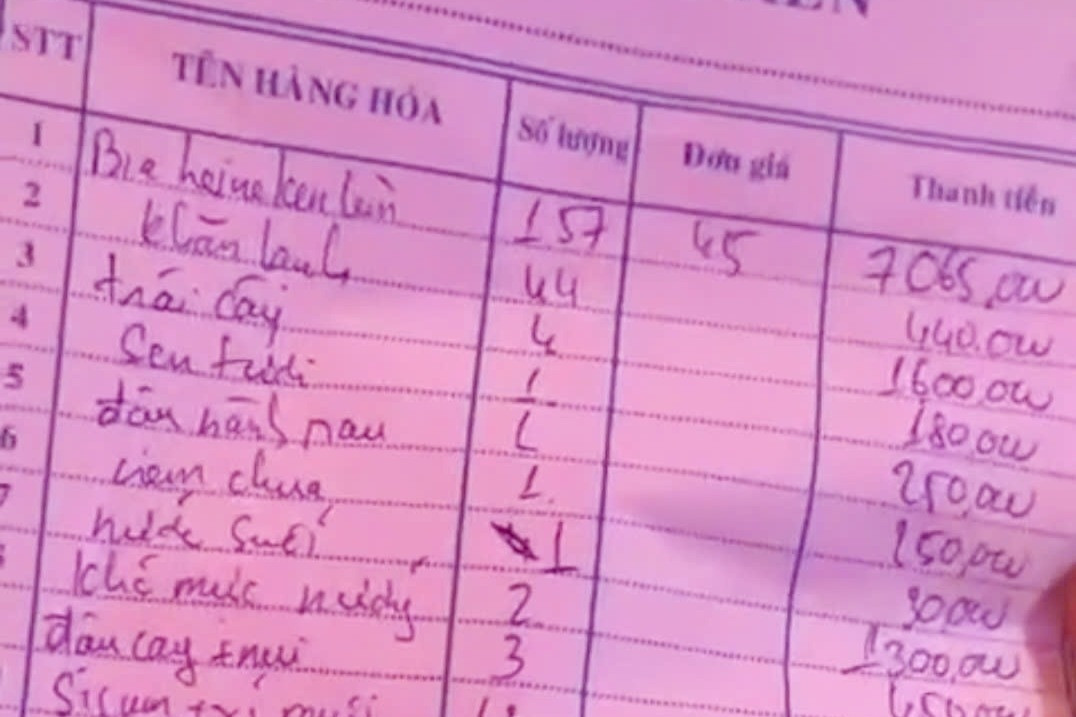 STT TÊN HÀNG HÓA Số lượng Đơn giá Thành tiền
1 Bia heineken lùn 157 45 7065,000
2 khăn lạnh 44 440.000
3 trái cây 4 1600,000
4 Sen tươi 1 180,000
5 đậu hành nau 1 250,000
6 nem chua 1 150,000
7 nước suối 1 30,000
khô mực nướng 2 1300,000
đậu cay 3 450,000